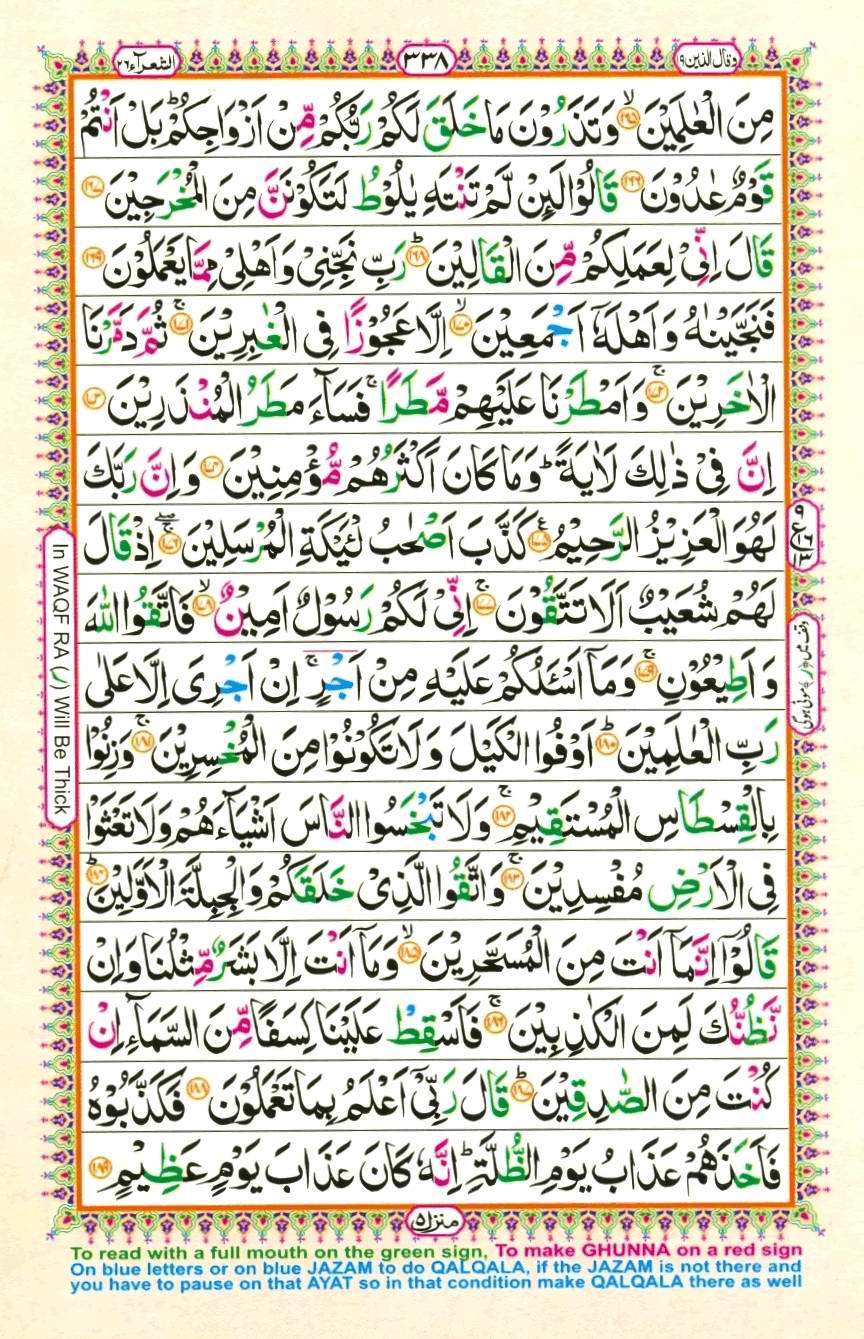 وقال الذین ۱۹
۳۳۸
الشعرآء ۲۶
مِنَ الْعٰلَمِیْنَ ۙ﴿۱۶۵﴾ وَتَذَرُوْنَ مَا خَلَقَ لَكُمْ رَبُّكُمْ مِّنْ اَزْوَاجِكُمْ ؕ بَلْ اَنْتُمْ
قَوْمٌ عٰدُوْنَ ﴿۱۶۶﴾ قَالُوْا لَىِٕنْ لَّمْ تَنْتَهِ یٰلُوْطُ لَتَكُوْنَنَّ مِنَ الْمُخْرَجِیْنَ ﴿۱۶۷﴾
قَالَ اِنِّیْ لِعَمَلِكُمْ مِّنَ الْقَالِیْنَ ؕ﴿۱۶۸﴾ رَبِّ نَجِّنِیْ وَاَهْلِیْ مِمَّا یَعْمَلُوْنَ ﴿۱۶۹﴾
فَنَجَّیْنٰهُ وَاَهْلَهٗۤ اَجْمَعِیْنَ ۙ﴿۱۷۰﴾ اِلَّا عَجُوْزًا فِی الْغٰبِرِیْنَ ۚ﴿۱۷۱﴾ ثُمَّ دَمَّرْنَا
الْاٰخَرِیْنَ ۚ﴿۱۷۲﴾ وَاَمْطَرْنَا عَلَیْهِمْ مَّطَرًا ۚ فَسَآءَ مَطَرُ الْمُنْذَرِیْنَ ﴿۱۷۳﴾
اِنَّ فِیْ ذٰلِكَ لَاٰیَةً ؕ وَمَا كَانَ اَكْثَرُهُمْ مُّؤْمِنِیْنَ ﴿۱۷۴﴾ وَاِنَّ رَبَّكَ
لَهُوَ الْعَزِیْزُ الرَّحِیْمُ ﴿۱۷۵﴾ كَذَّبَ اَصْحٰبُ لْـَٔیْكَةِ الْمُرْسَلِیْنَ ۚۖ﴿۱۷۶﴾ اِذْ قَالَ
لَهُمْ شُعَیْبٌ اَلَا تَتَّقُوْنَ ۚ﴿۱۷۷﴾ اِنِّیْ لَكُمْ رَسُوْلٌ اَمِیْنٌ ۙ﴿۱۷۸﴾ فَاتَّقُوا اللّٰهَ
وَاَطِیْعُوْنِ ۚ﴿۱۷۹﴾ وَمَاۤ اَسْـَٔلُكُمْ عَلَیْهِ مِنْ اَجْرٍ ۚ اِنْ اَجْرِیَ اِلَّا عَلٰی
رَبِّ الْعٰلَمِیْنَ ؕ﴿۱۸۰﴾ اَوْفُوا الْكَیْلَ وَلَا تَكُوْنُوْا مِنَ الْمُخْسِرِیْنَ ۚ﴿۱۸۱﴾ وَزِنُوْا
بِالْقِسْطَاسِ الْمُسْتَقِیْمِ ۚ﴿۱۸۲﴾ وَلَا تَبْخَسُوا النَّاسَ اَشْیَآءَهُمْ وَلَا تَعْثَوْا
فِی الْاَرْضِ مُفْسِدِیْنَ ۚ﴿۱۸۳﴾ وَاتَّقُوا الَّذِیْ خَلَقَكُمْ وَالْجِبِلَّةَ الْاَوَّلِیْنَ ؕ﴿۱۸۴﴾
قَالُوْۤا اِنَّمَاۤ اَنْتَ مِنَ الْمُسَحَّرِیْنَ ۙ﴿۱۸۵﴾ وَمَاۤ اَنْتَ اِلَّا بَشَرٌ مِّثْلُنَا وَاِنْ
نَّظُنُّكَ لَمِنَ الْكٰذِبِیْنَ ۚ﴿۱۸۶﴾ فَاَسْقِطْ عَلَیْنَا كِسَفًا مِّنَ السَّمَآءِ اِنْ
كُنْتَ مِنَ الصّٰدِقِیْنَ ؕ﴿۱۸۷﴾ قَالَ رَبِّیْۤ اَعْلَمُ بِمَا تَعْمَلُوْنَ ﴿۱۸۸﴾ فَكَذَّبُوْهُ
فَاَخَذَهُمْ عَذَابُ یَوْمِ الظُّلَّةِ ؕ اِنَّهٗ كَانَ عَذَابَ یَوْمٍ عَظِیْمٍ ﴿۱۸۹﴾
منزل ۵
In WAQF RA (ر) Will Be Thick
To read with a full mouth on the green sign, To make GHUNNA on a red sign
On blue letters or on blue JAZAM to do QALQALA, if the JAZAM is not there and
you have to pause on that AYAT so in that condition make QALQALA there as well